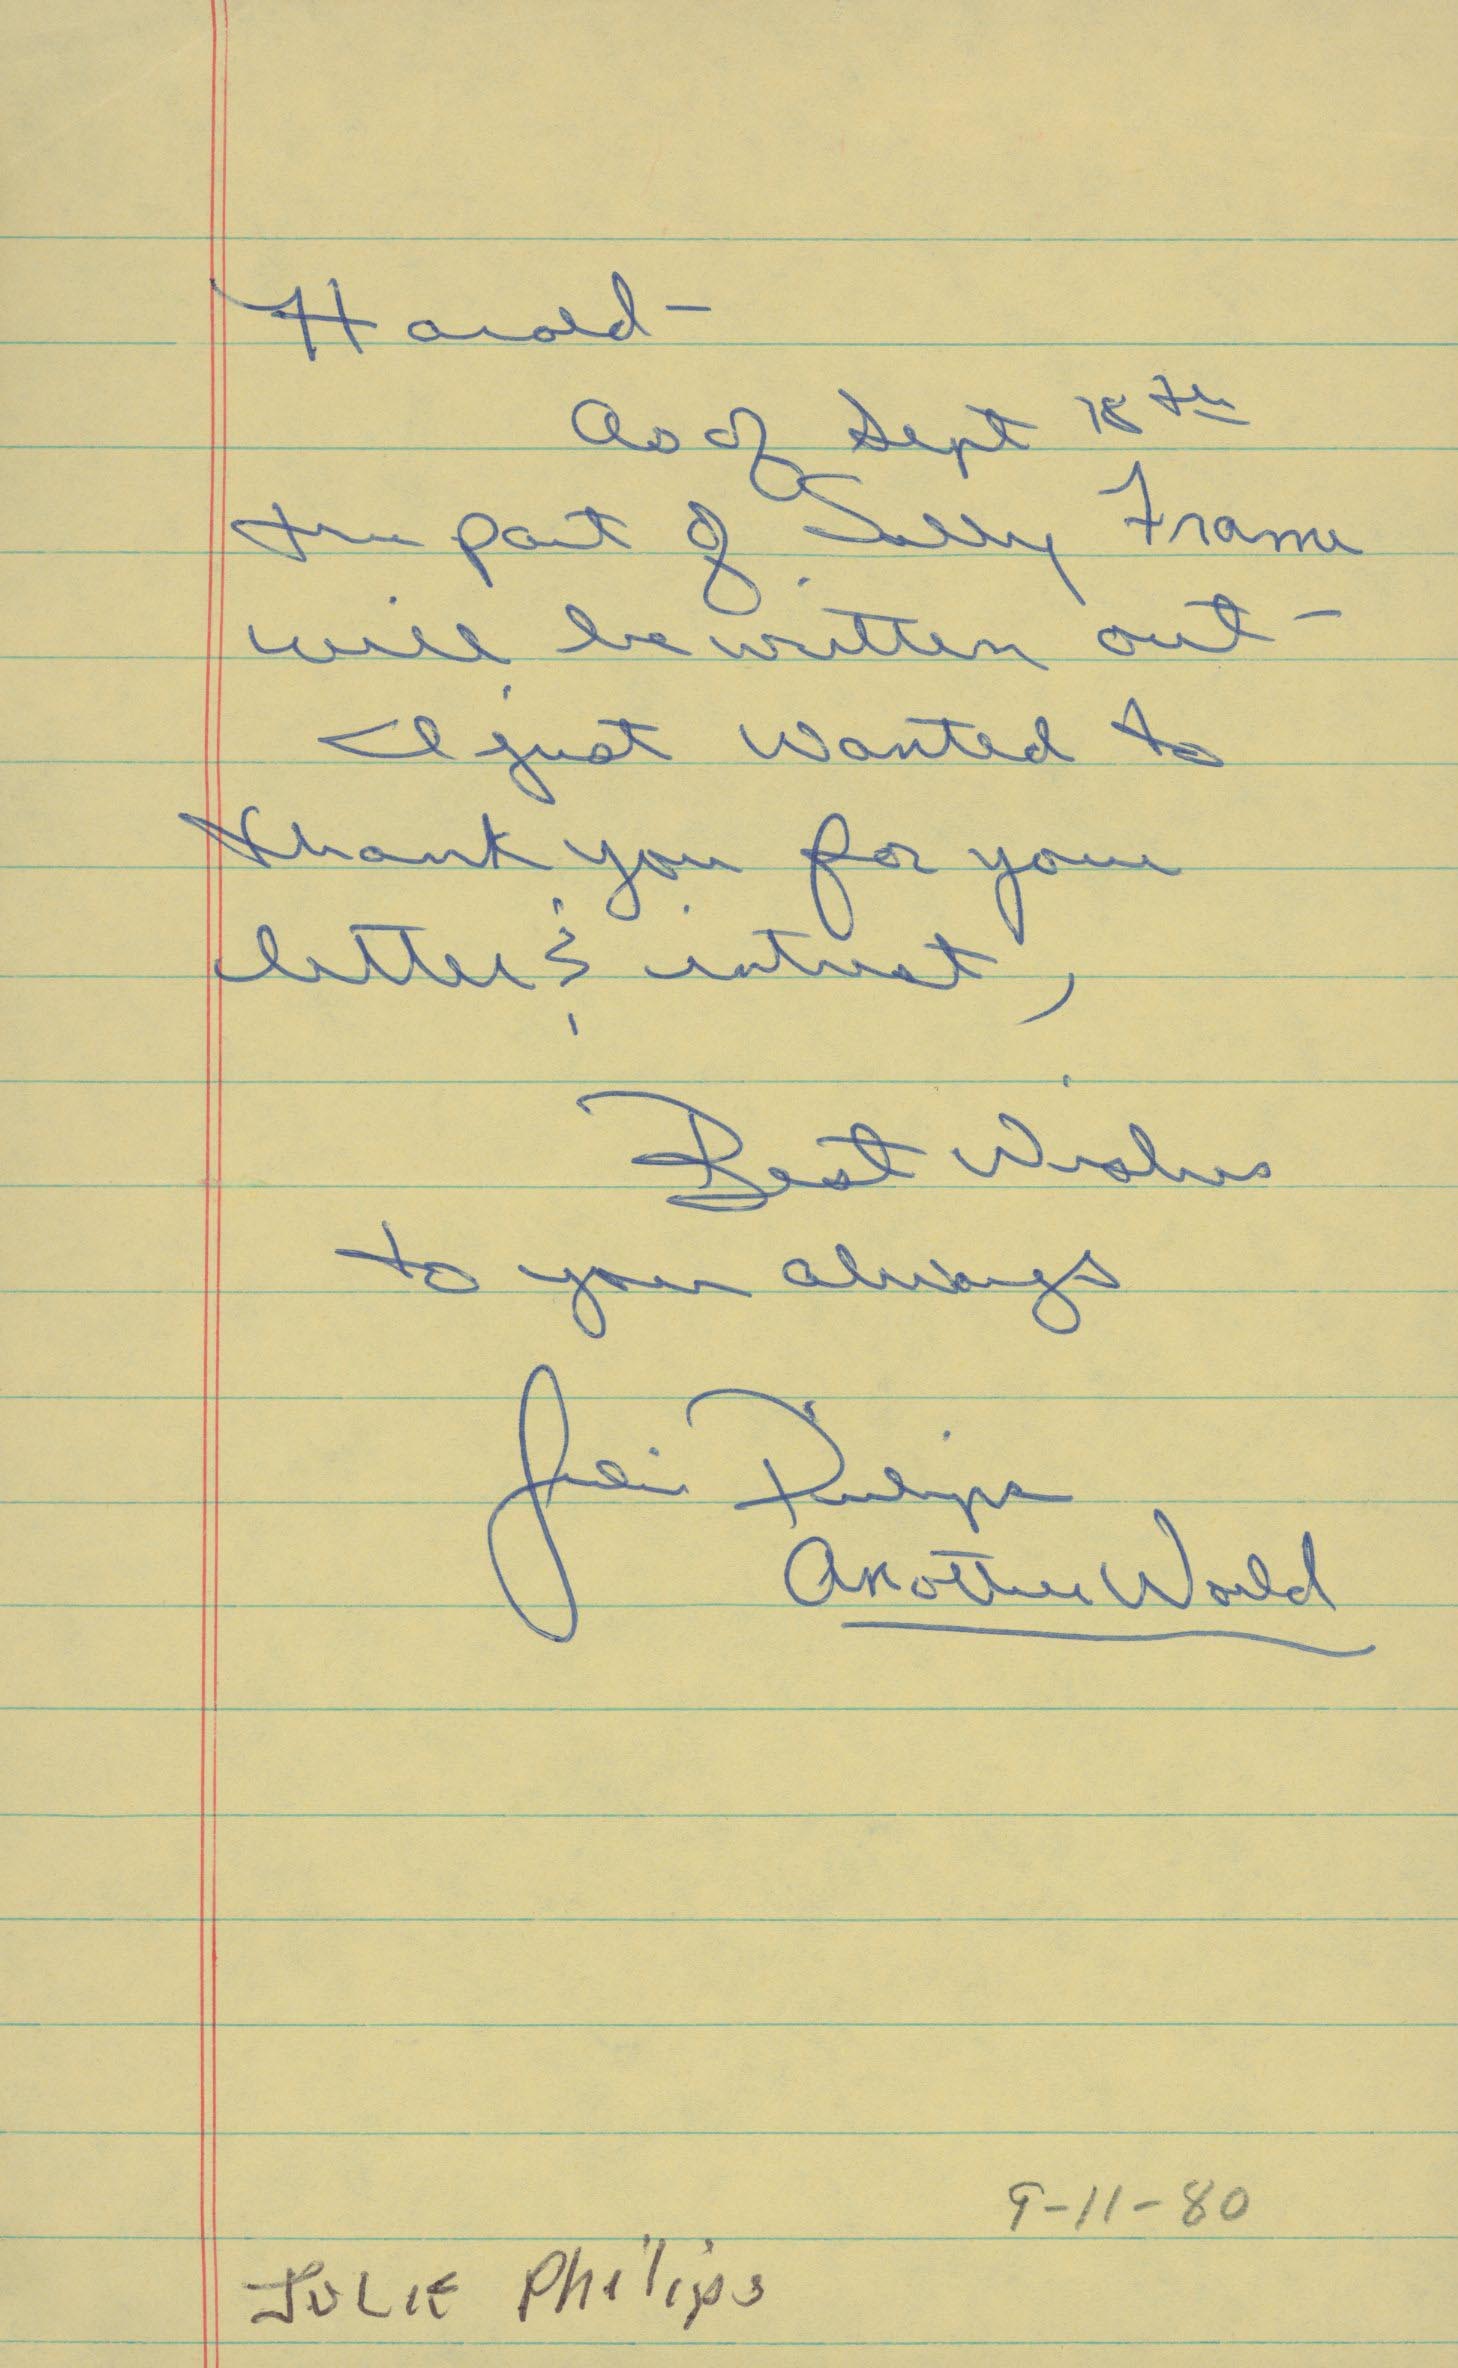 Harold –
As of Sept 18th
the part of Sally Frame
will be written out –
I just wanted to
thank you for your
letter & interest,
Best Wishes
to you always
Julie Philips
Another World
9-11-80
JULIE Philips